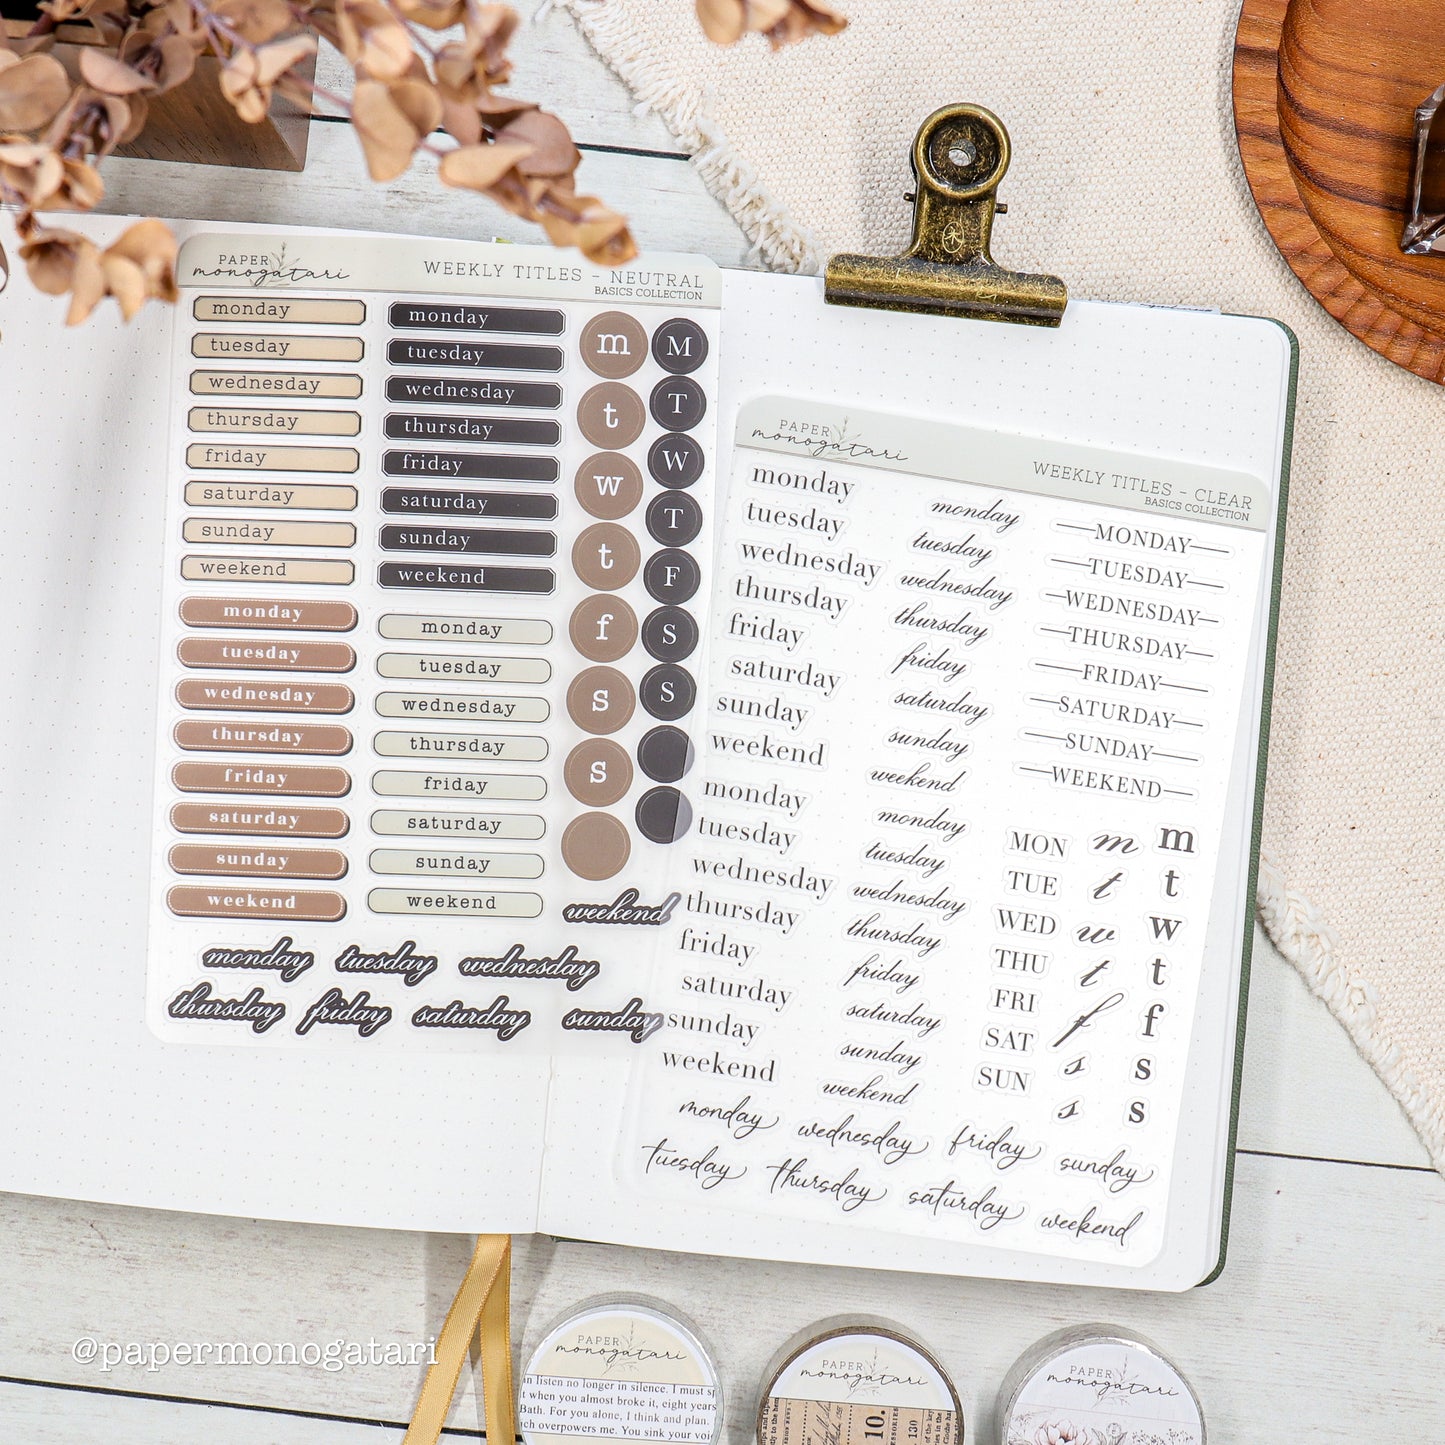 PAPER
monogatari
WEEKLY TITLES - NEUTRAL
BASICS COLLECTION
monday
tuesday
wednesday
thursday
friday
saturday
sunday
weekend
monday
tuesday
wednesday
thursday
friday
saturday
sunday
weekend
monday
tuesday
wednesday
thursday
friday
saturday
sunday
weekend
monday
tuesday
wednesday
thursday
friday
saturday
sunday
weekend
m
t
w
t
f
s
s
M
T
W
T
F
S
S
weekend
monday tuesday wednesday
thursday friday saturday sunday
PAPER
monogatari
WEEKLY TITLES - CLEAR
BASICS COLLECTION
monday
tuesday
wednesday
thursday
friday
saturday
sunday
weekend
monday
tuesday
wednesday
thursday
friday
saturday
sunday
weekend
monday
tuesday
wednesday
thursday
friday
saturday
sunday
weekend
monday
tuesday
wednesday
thursday
friday
saturday
sunday
weekend
MONDAY
TUESDAY
WEDNESDAY
THURSDAY
FRIDAY
SATURDAY
SUNDAY
WEEKEND
MON
TUE
WED
THU
FRI
SAT
SUN
m
t
w
t
f
s
s
m
t
w
t
f
s
s
monday wednesday friday sunday
tuesday thursday saturday weekend
@papermonogatari
PAPER
monogatari
an listen no longer in silence. I must
when you almost broke it, eight years
Bath. For you alone, I think and plan.
overpowers me. You sink your
PAPER
monogatari
10.
130
PAPER
monogatari